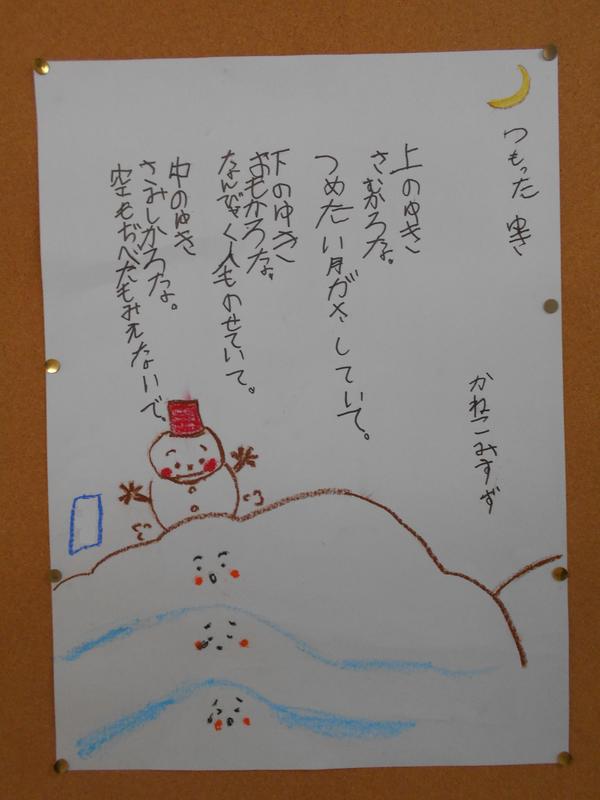 つもった ゆき
かねこみすず
上のゆき
さむかろな。
つめたい月がさしていて。
下のゆき
おもかろな。
なんびゃく人ものせていて。
中のゆき
さみしかろな。
空もぢべたもみえないで。